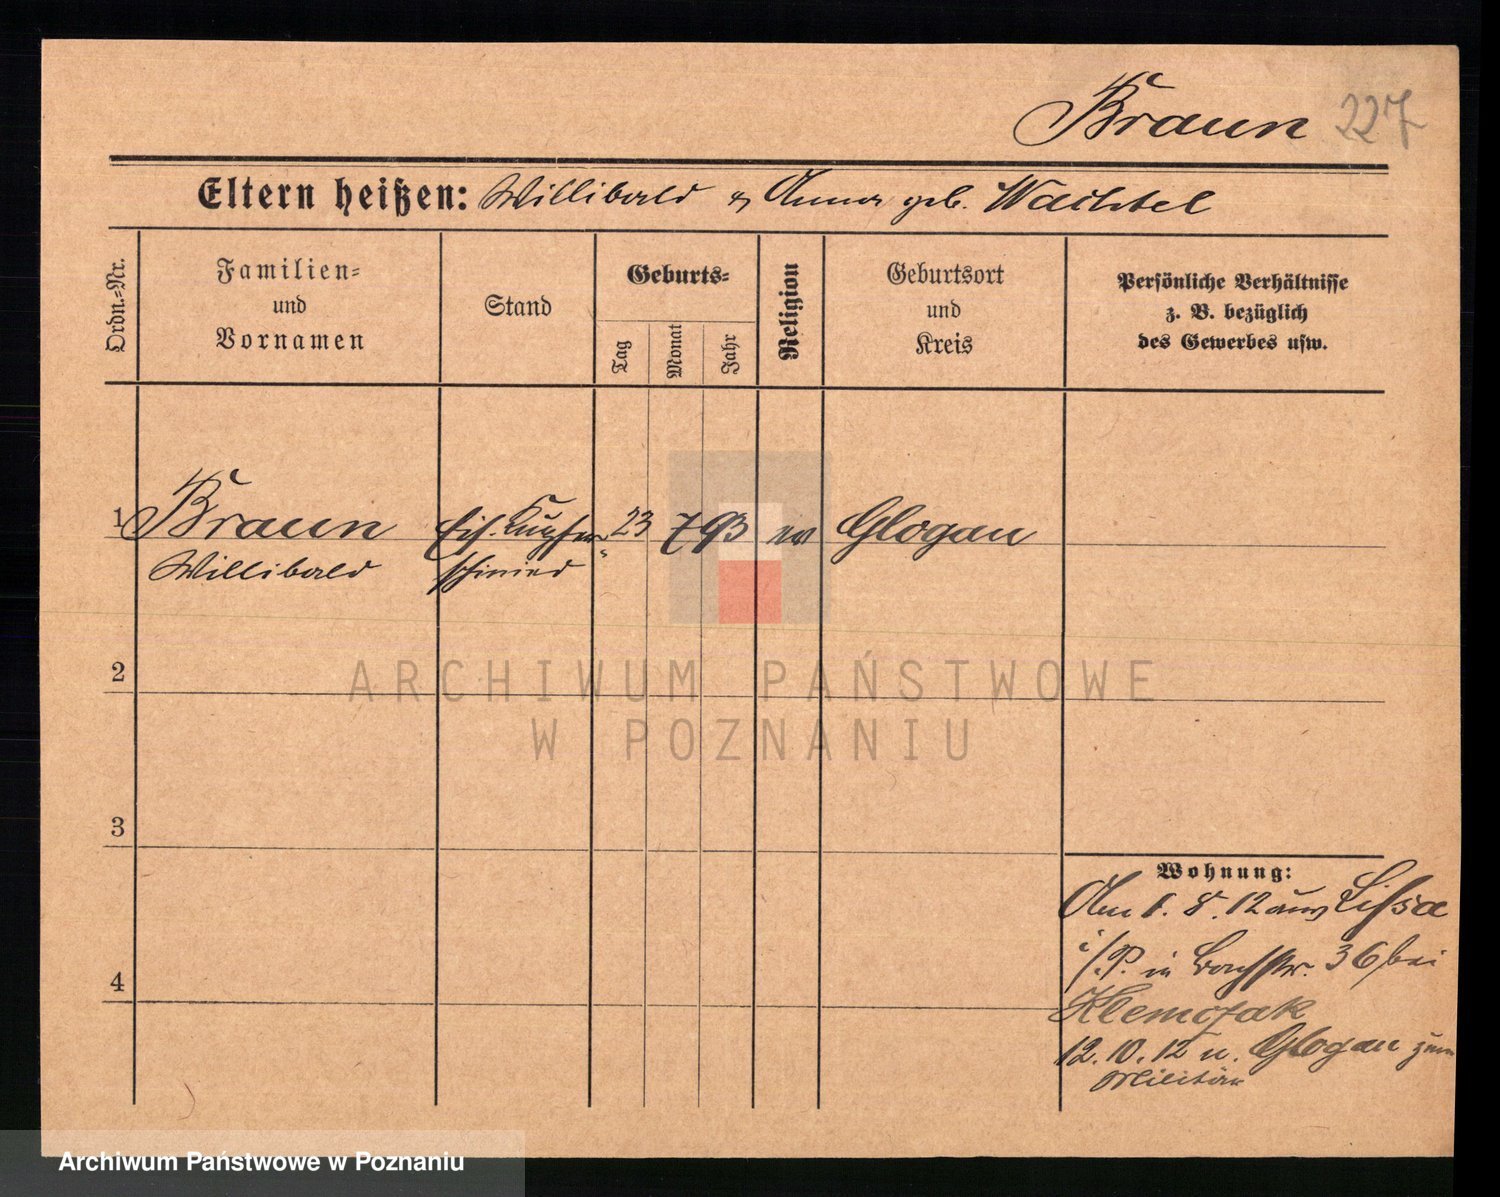 Braun 227
Eltern heißen: Willibald & Anna geb. Wachtel
Ordn.-Nr.
Familien-
und
Vornamen
Stand
Geburts-
Tag
Monat
Jahr
Religion
Geburtsort
und
Kreis
Persönliche Verhältnisse
z. B. bezüglich
des Gewerbes usw.
1 Braun Eis. Kupfer- 23 7 93 ev Glogau
Willibald schmied
2
3
4
Wohnung:
Am 6. 8. 12 aus Lissa
i/P. in Bachstr. 36 bei
12. 10. 12 n. Glogau zum
Militär
ARCHIWUM PAŃSTWOWE
W POZNANIU
Archiwum Państwowe w Poznaniu